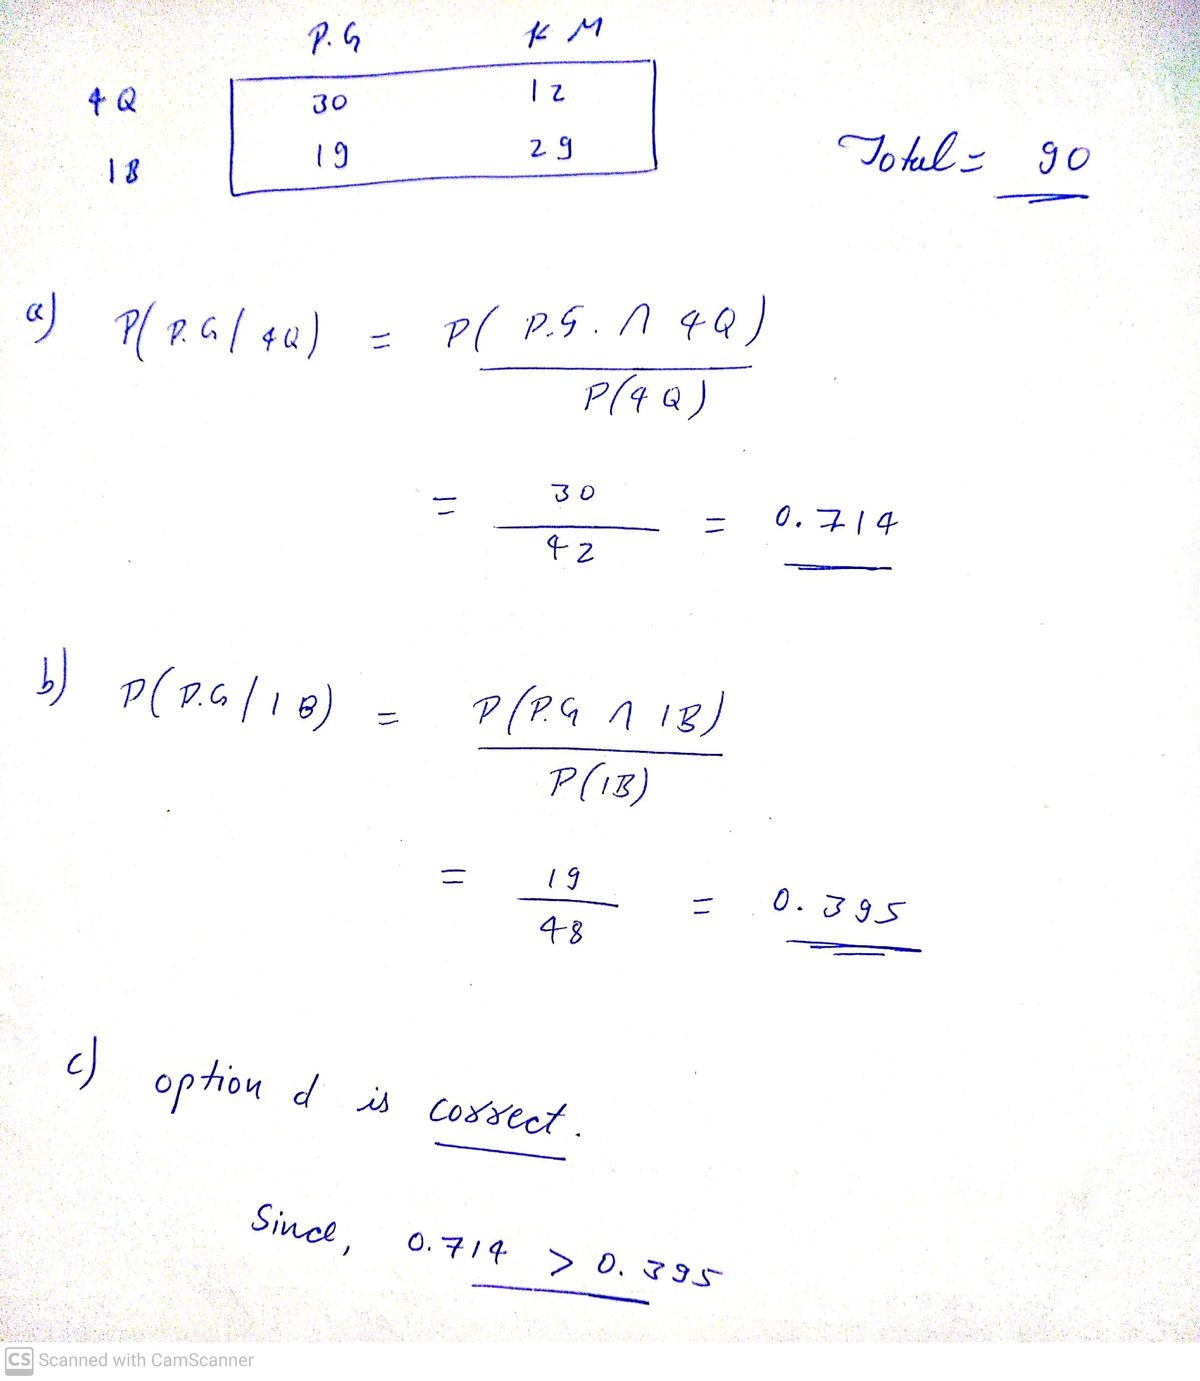 P.G K M
4 Q 30 12
1B 19 29
Total = 90
a) P( P.G / 4Q ) = P( P.G. ∩ 4Q )
P(4 Q)
= 30 = 0.714
42
b) P( P.G / 1 B) = P(P.G ∩ 1B)
P(1B)
= 19 = 0.395
48
c) option d is correct.
Since, 0.714 > 0.395
CS Scanned with CamScanner